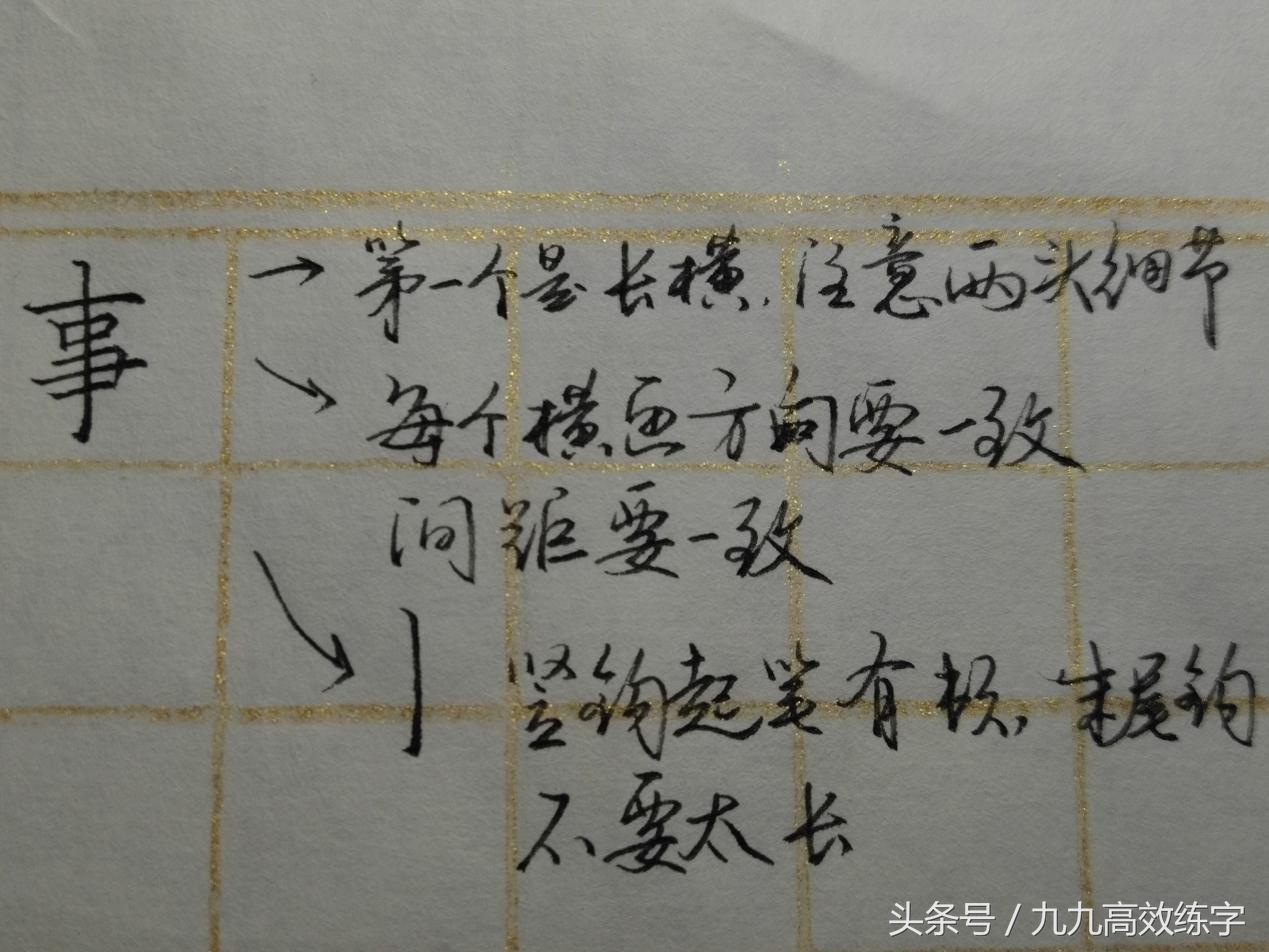 事
→第一个是长横，注意两头细节
每个横画方向要一致
间距要一致
亅竖钩起笔有根，末尾钩
不要太长
头条号 / 九九高效练字